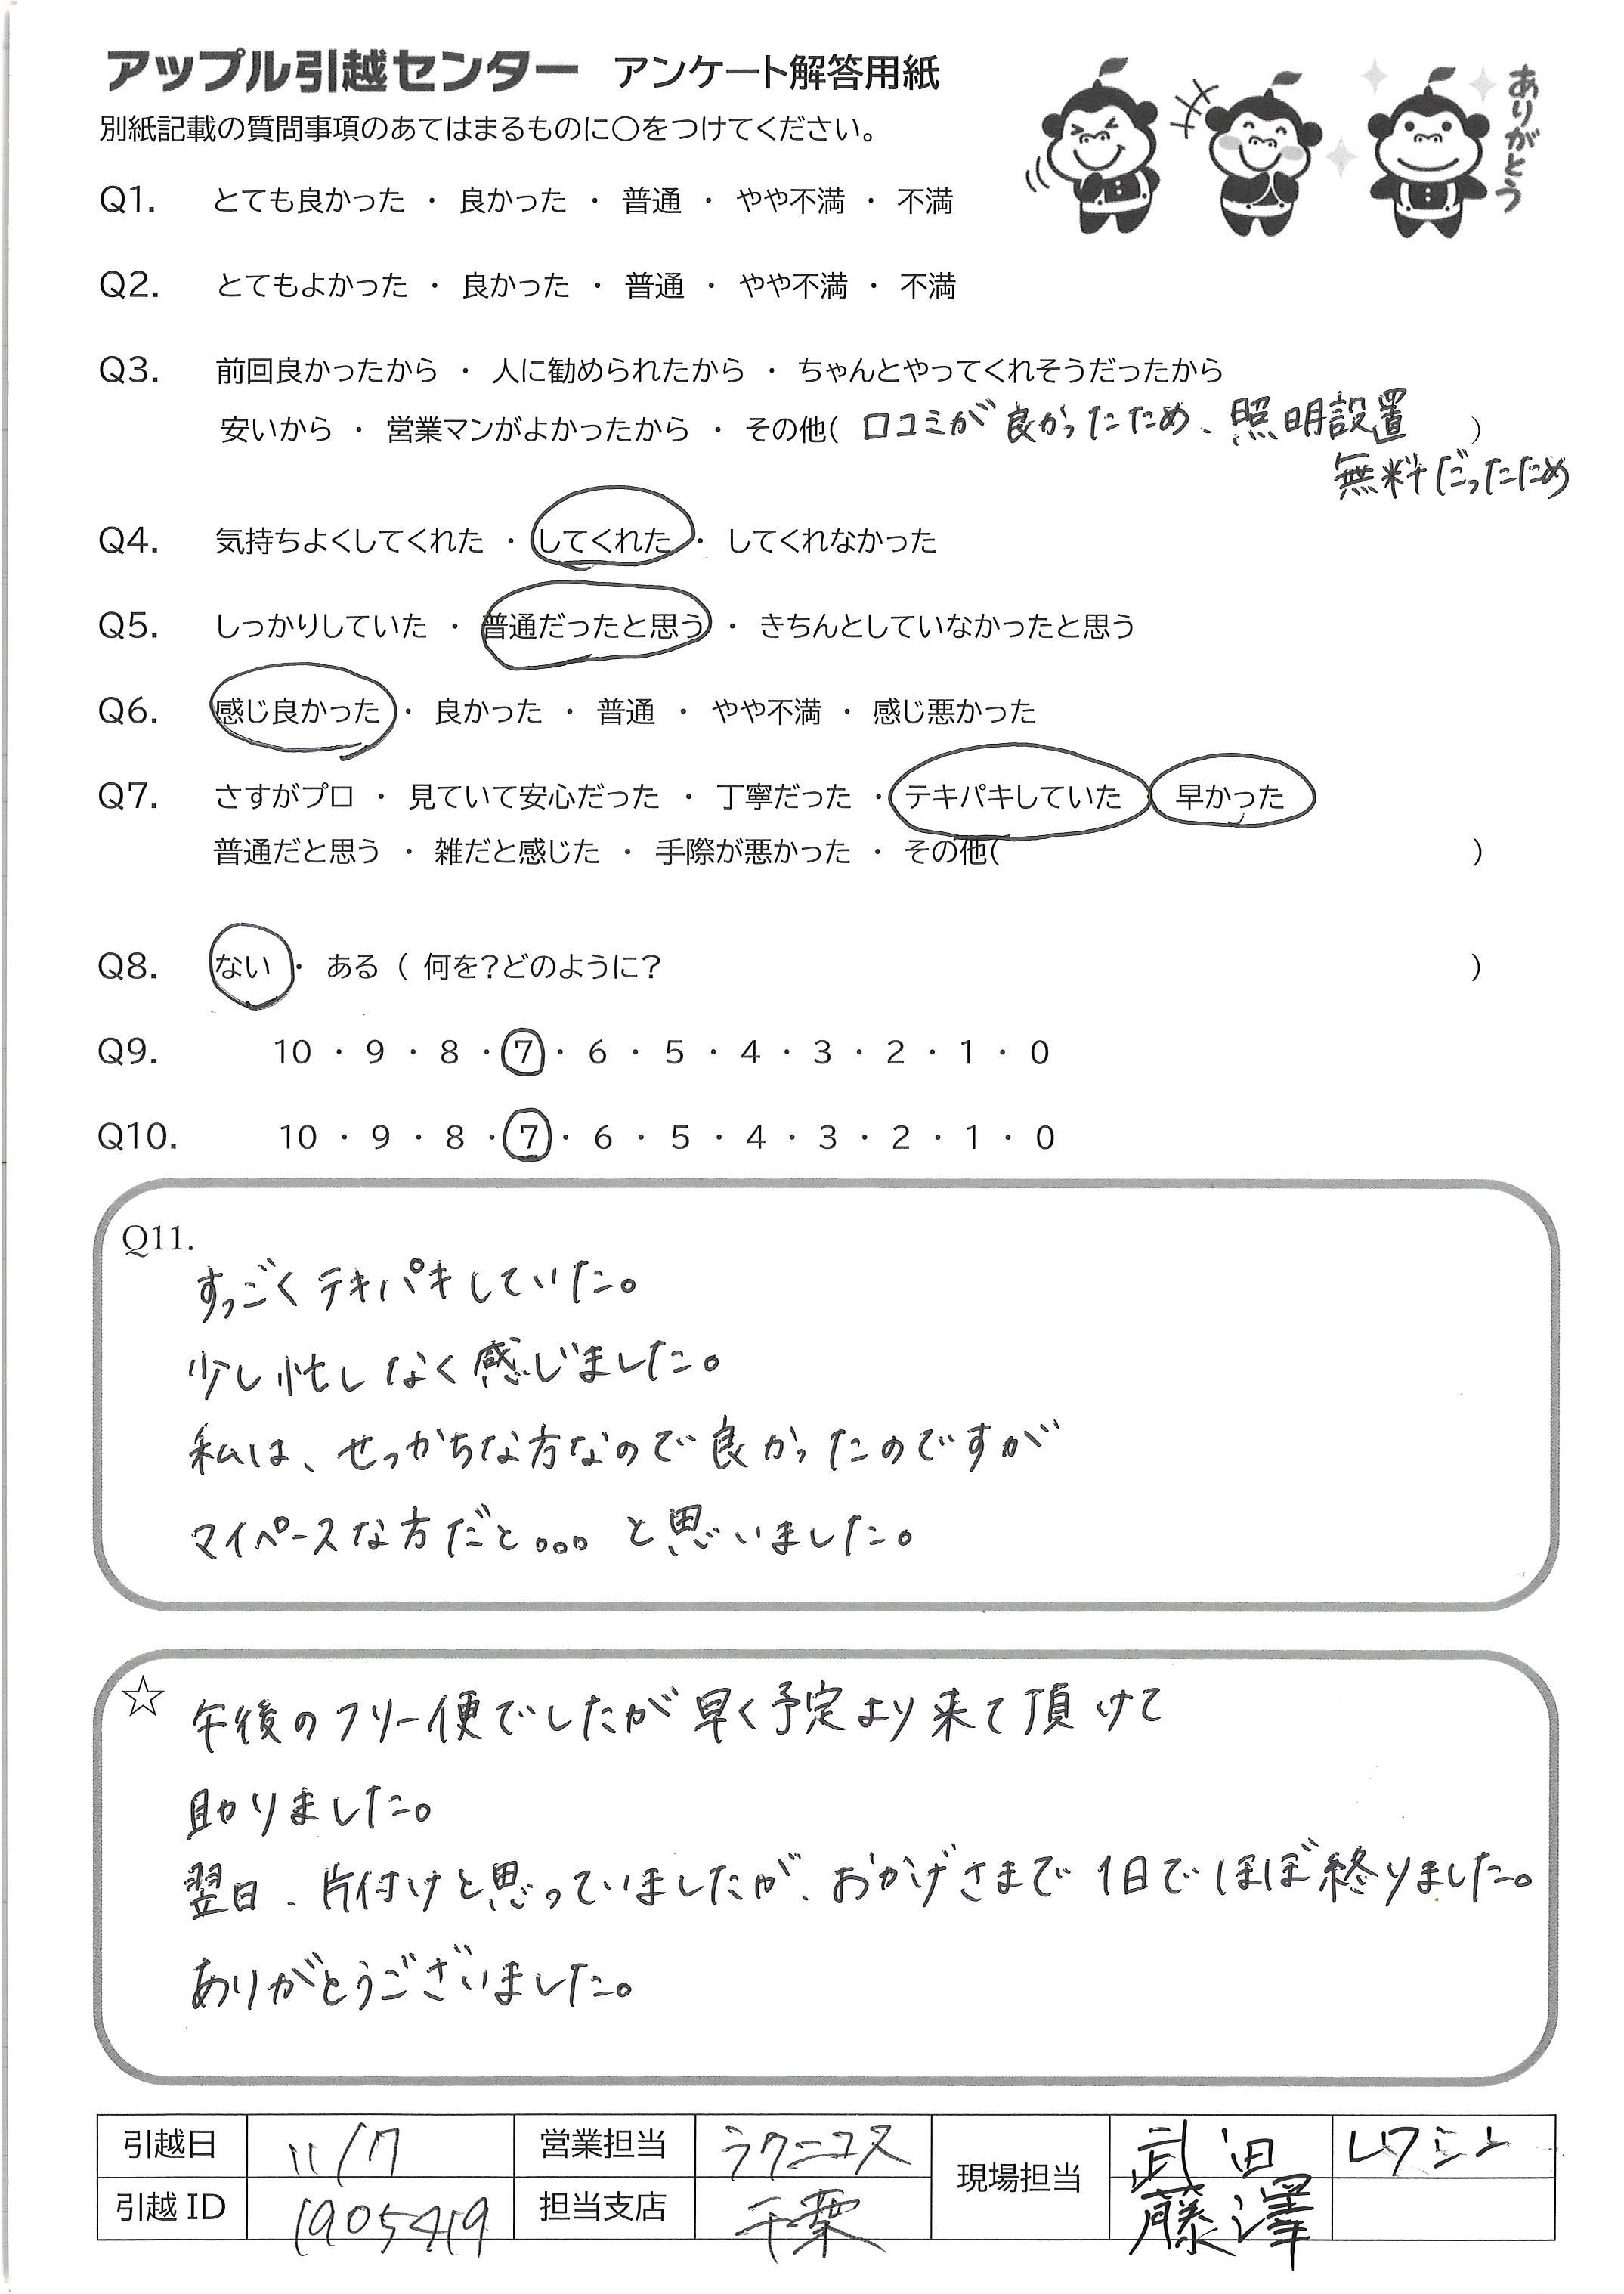 アップル引越センター アンケート解答用紙
ありがとう
別紙記載の質問事項のあてはまるものに〇をつけてください。
Q1. とても良かった ・ 良かった ・ 普通 ・ やや不満 ・ 不満
Q2. とてもよかった ・ 良かった ・ 普通 ・ やや不満 ・ 不満
Q3. 前回良かったから ・ 人に勧められたから ・ ちゃんとやってくれそうだったから
安いから ・ 営業マンがよかったから ・ その他( 口コミが良かったため、照明設置 )
無料だったため
Q4. 気持ちよくしてくれた ・ してくれた ・ してくれなかった
Q5. しっかりしていた ・ 普通だったと思う ・ きちんとしていなかったと思う
Q6. 感じ良かった ・ 良かった ・ 普通 ・ やや不満 ・ 感じ悪かった
Q7. さすがプロ ・ 見ていて安心だった ・ 丁寧だった ・ テキパキしていた ・ 早かった
普通だと思う ・ 雑だと感じた ・ 手際が悪かった ・ その他( )
Q8. ない ・ ある ( 何を?どのように? )
Q9. 10 ・ 9 ・ 8 ・ 7 ・ 6 ・ 5 ・ 4 ・ 3 ・ 2 ・ 1 ・ 0
Q10. 10 ・ 9 ・ 8 ・ 7 ・ 6 ・ 5 ・ 4 ・ 3 ・ 2 ・ 1 ・ 0
Q11.
すっごくテキパキしていた。
少し忙しなく感じました。
私は、せっかちな方なので良かったのですが
マイペースな方だと。。。と思いました。
☆ 午後のフリー便でしたが早く予定より来て頂けて
助りました。
翌日、片付けと思っていましたが、おかげさまで1日でほぼ終りました。
ありがとうございました。
引越日 11/7 営業担当 ラクニコス 現場担当 武田
引越ID 1905419 担当支店 千葉 藤澤